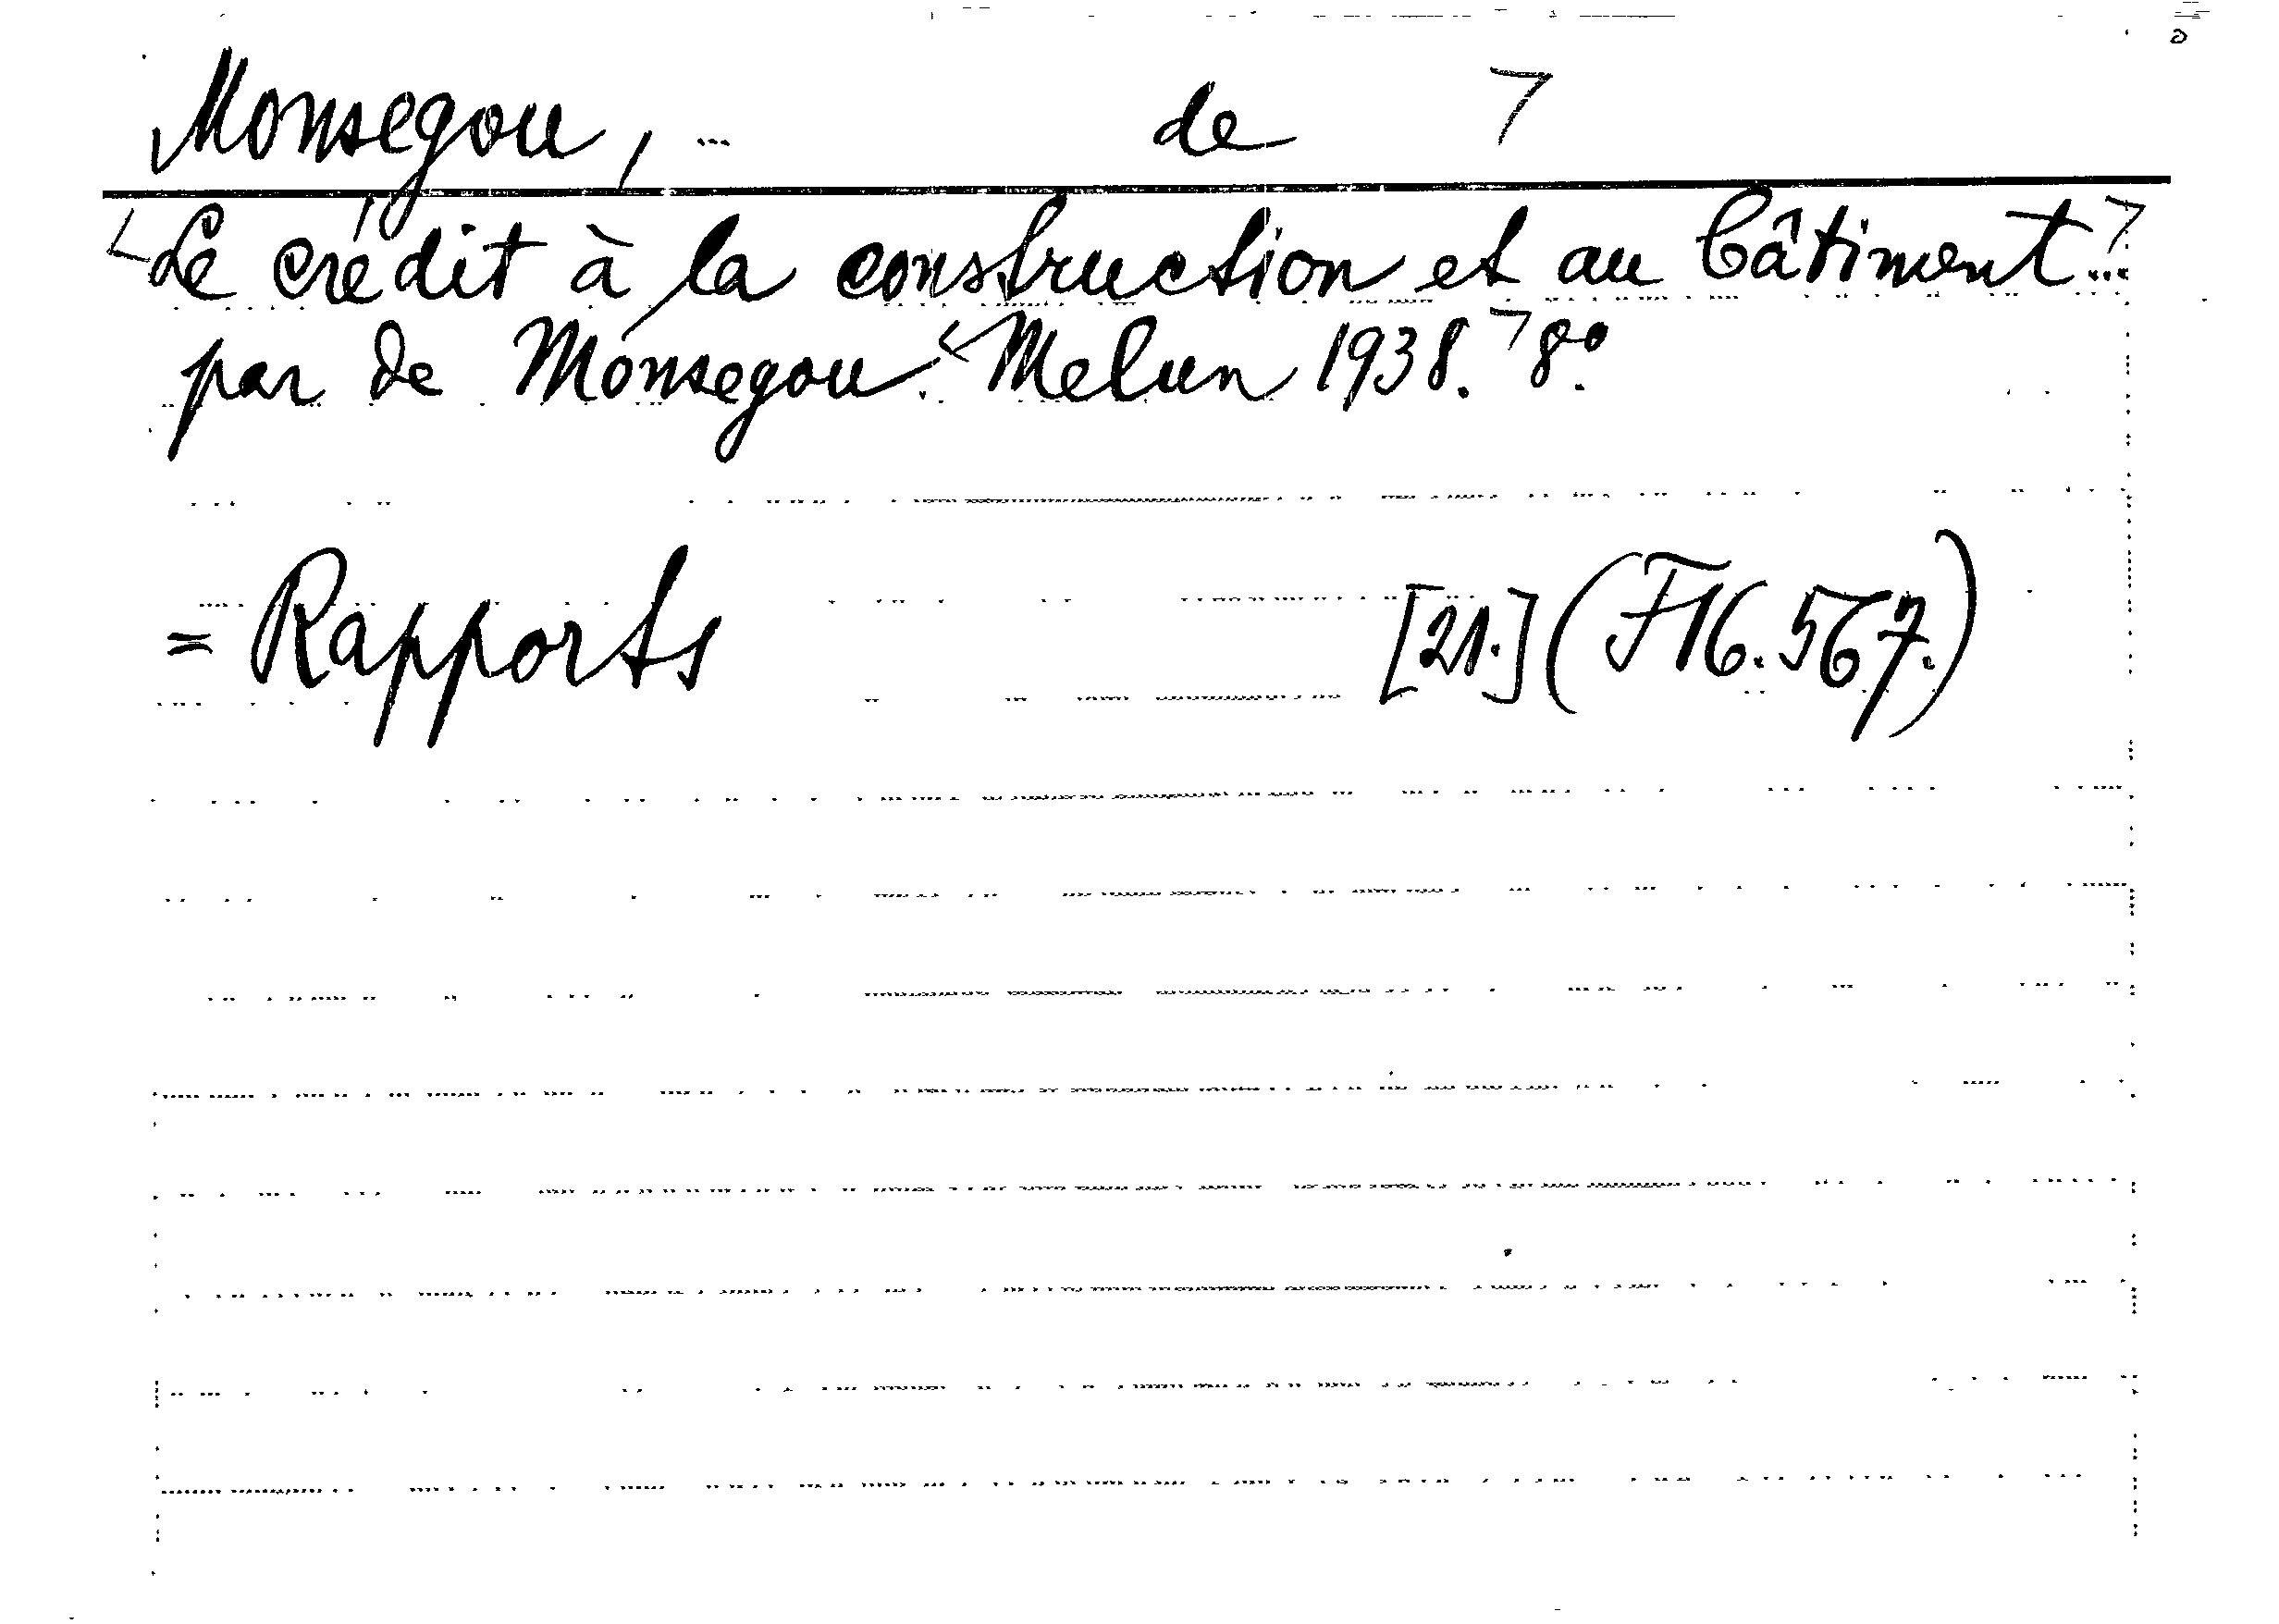 Monsegou, ... de ⁊
<Le crédit à la construction et au bâtiment...⁊
par de Monsegou. <Melun 1938.⁊ 8°.
= Rapports [21.] (F16.567.)